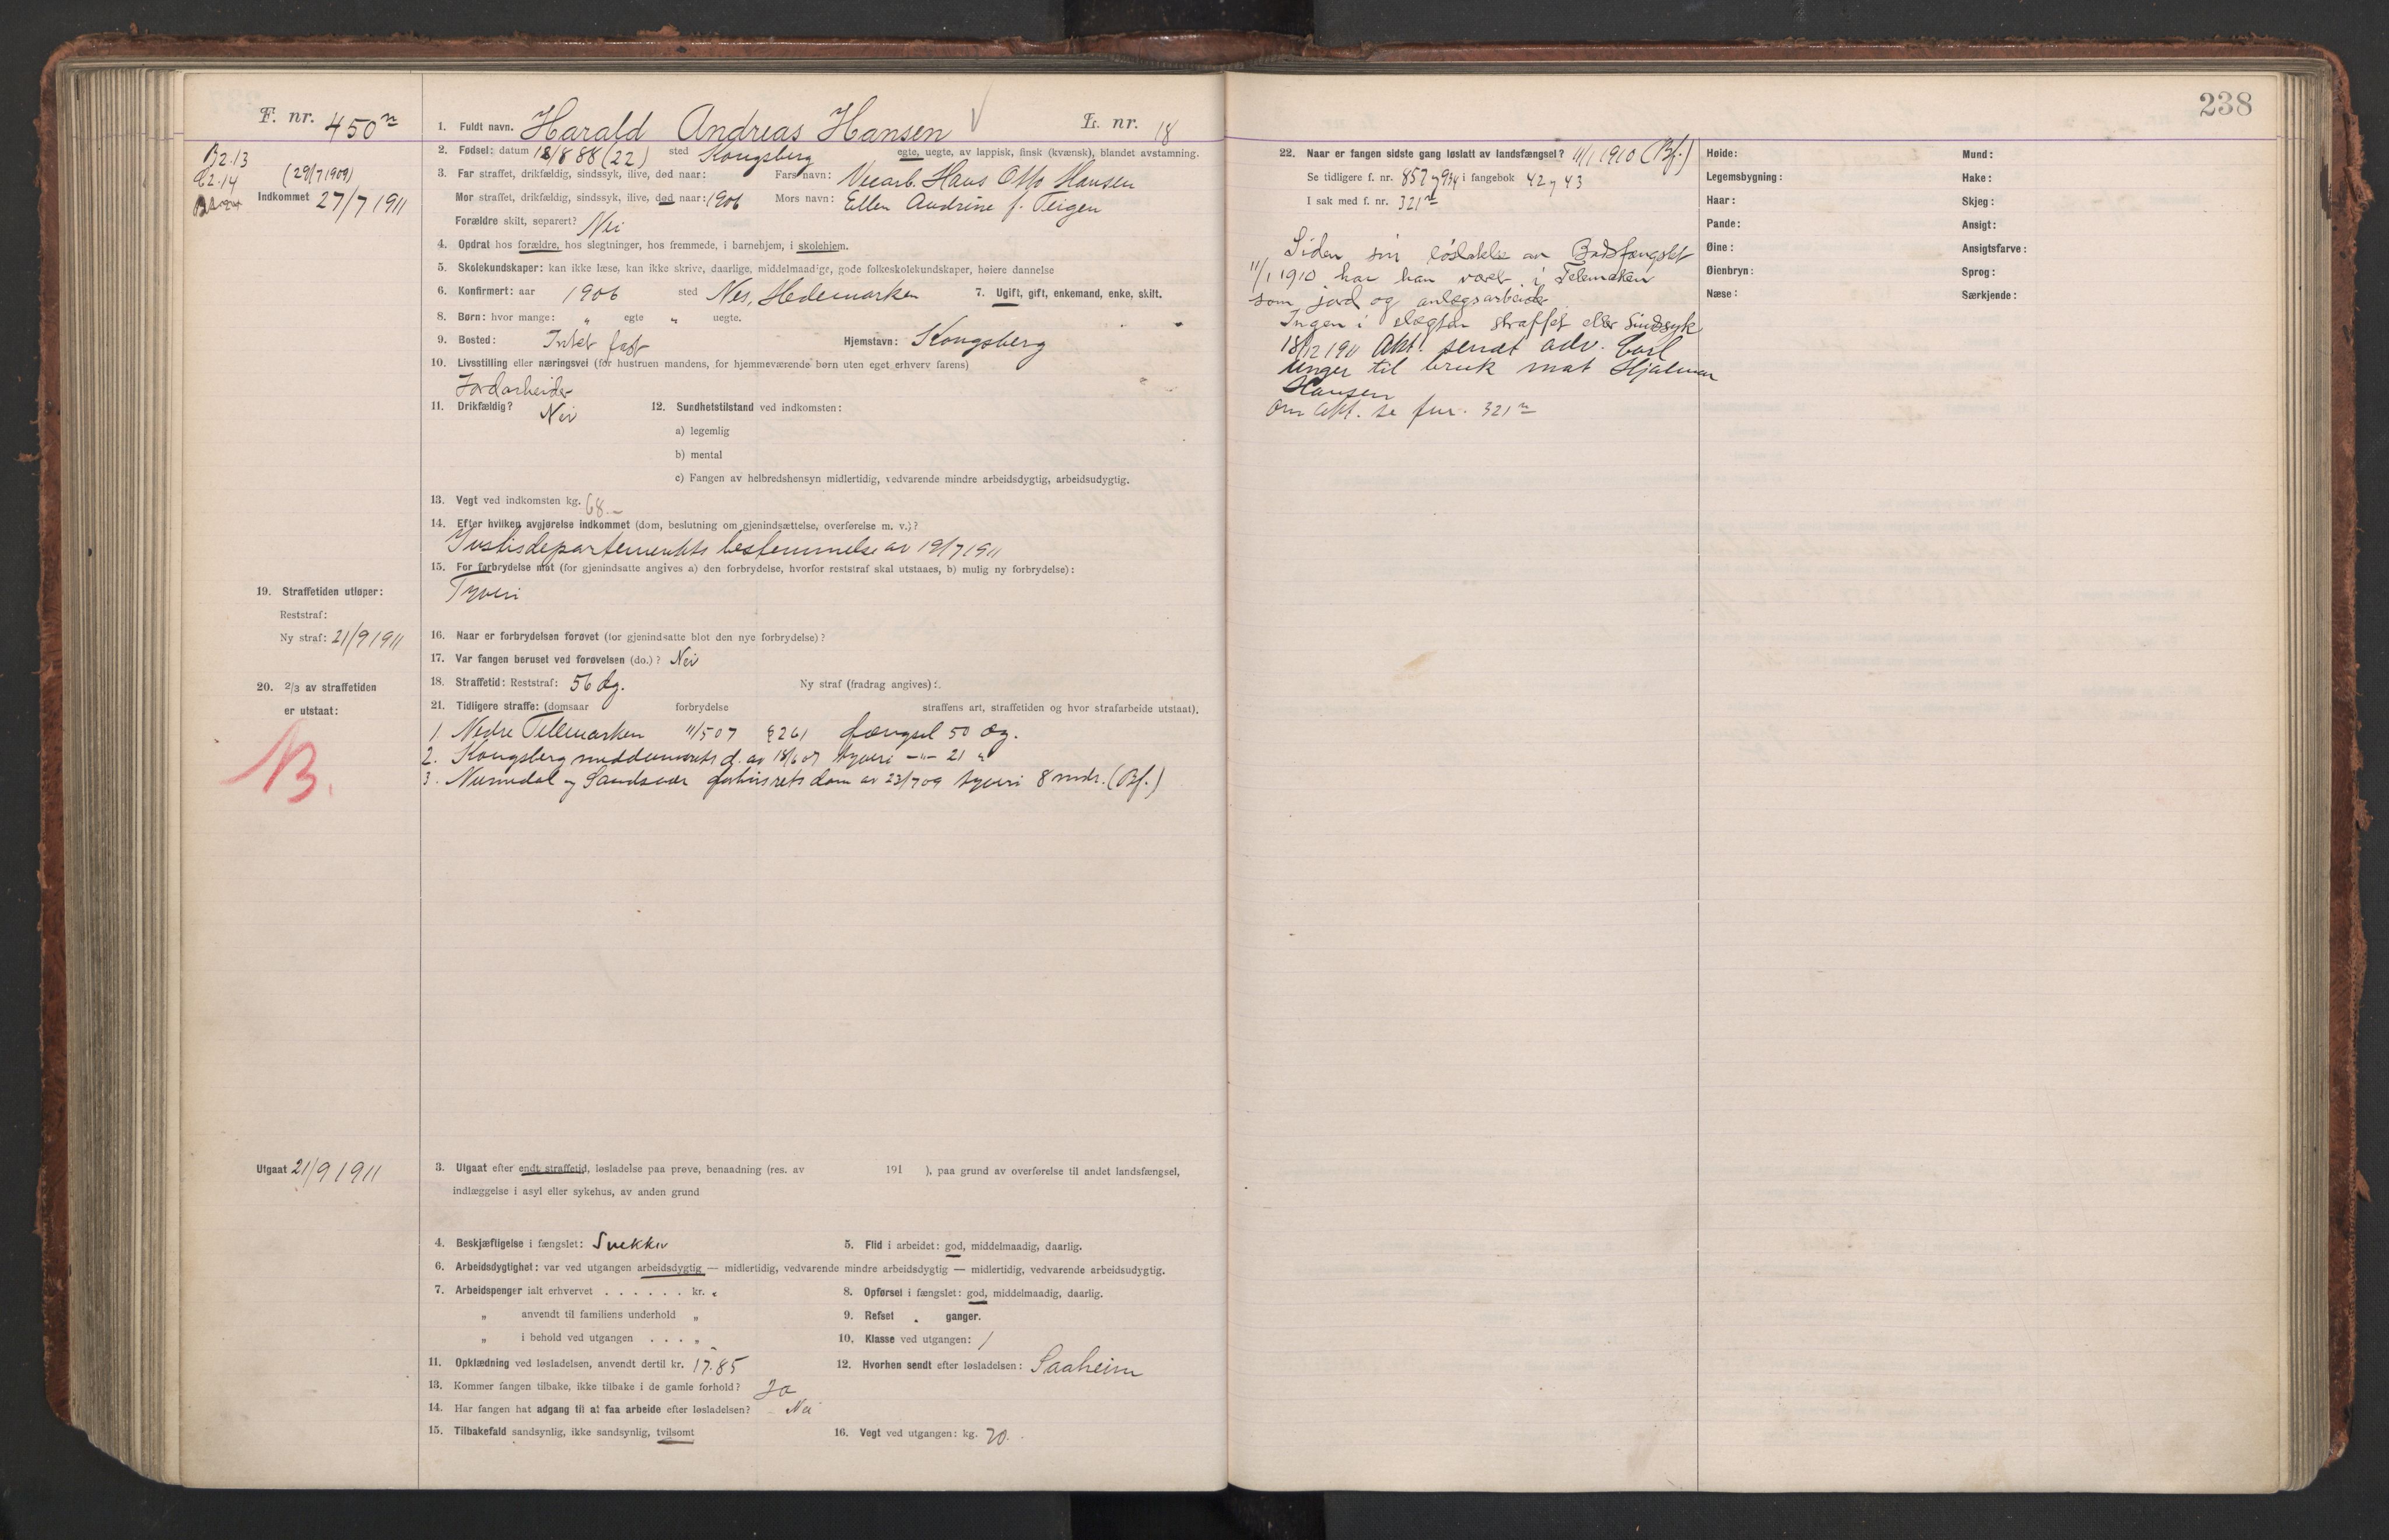 238
F. nr. 450ⁿ
1. Fuldt navn. Harald Andreas Hansen L. nr. 18
B2.13
B2.14
(29/7 1909)
Indkommet 27/7 1911
2. Fødsel: datum 18/8 88 (22) sted Kongsberg egte, uegte, av lappisk, finsk (kvænsk), blandet avstamning.
3. Far straffet, drikfældig, sindssyk, ilive, død naar: Fars navn: Veiarb. Hans Otto Hansen
Mor straffet, drikfældig, sindssyk, ilive, død naar: 1906 Mors navn: Ellen Andrine f. Teigen
Forældre skilt, separert? Nei
4. Opdrat hos forældre, hos slegtninger, hos fremmede, i barnehjem, i skolehjem.
5. Skolekundskaper: kan ikke læse, kan ikke skrive, daarlige, middelmaadige, gode folkeskolekundskaper, høiere dannelse
6. Konfirmert: aar 1906 sted Nes, Hedemarken 7. Ugift, gift, enkemand, enke, skilt.
8. Børn: hvor mange: " egte " uegte.
9. Bosted: Intet fast Hjemstavn: Kongsberg
10. Livsstilling eller næringsvei (for hustruen mandens, for hjemmeværende børn uten eget erhverv farens)
Jordarbeider
11. Drikfældig? Nei 12. Sundhetstilstand ved indkomsten:
a) legemlig
b) mental
c) Fangen av helbredshensyn midlertidig, vedvarende mindre arbeidsdygtig, arbeidsudygtig.
13. Vegt ved indkomsten kg. 68.-
14. Efter hvilken avgjørelse indkommet (dom, beslutning om gjenindsættelse, overførelse m. v.)?
Justisdepartementets bestemmelse av 19/7 1911
15. For forbrydelse mot (for gjenindsatte angives a) den forbrydelse, hvorfor reststraf skal utstaaes, b) mulig ny forbrydelse):
Tyveri
19. Straffetiden utløper:
Reststraf:
Ny straf: 21/9 1911
16. Naar er forbrydelsen forøvet (for gjenindsatte blot den nye forbrydelse)?
17. Var fangen beruset ved forøvelsen (do.)? Nei
18. Straffetid: Reststraf: 56 dg. Ny straf (fradrag angives):
20. 2/3 av straffetiden
er utstaat:
21. Tidligere straffe: (domsaar forbrydelse straffens art, straffetiden og hvor strafarbeide utstaat).
1. Nedre Tellemarken 11/5 07 § 261 fængsel 50 dg.
2. Kongsberg meddomsrets d. av 18/6 07 tyveri -"- 21 "
3. Numedal og Sandsvær forhørsrets dom av 23/7 09 tyveri 8 mdr. (Bf.)
B.
Utgaat 21/9 1911
3. Utgaat efter endt straffetid, løsladelse paa prøve, benaadning (res. av 191 ), paa grund av overførelse til andet landsfængsel,
indlæggelse i asyl eller sykehus, av anden grund
4. Beskjæftigelse i fængslet: Snekker 5. Flid i arbeidet: god, middelmaadig, daarlig.
6. Arbeidsdygtighet: var ved utgangen arbeidsdygtig — midlertidig, vedvarende mindre arbeidsdygtig — midlertidig, vedvarende arbeidsudygtig.
7. Arbeidspenger ialt erhvervet . . . . . . kr. " 8. Opførsel i fængslet: god, middelmaadig, daarlig.
" anvendt til familiens underhold " 9. Refset " ganger.
" i behold ved utgangen . . . " 10. Klasse ved utgangen: 1
11. Opklædning ved løsladelsen, anvendt dertil kr. 17.85 12. Hvorhen sendt efter løsladelsen: Saaheim
13. Kommer fangen tilbake, ikke tilbake i de gamle forhold? Ja
14. Har fangen hat adgang til at faa arbeide efter løsladelsen? Nei
15. Tilbakefald sandsynlig, ikke sandsynlig, tvilsomt 16. Vegt ved utgangen: kg. 70.
22. Naar er fangen sidste gang løslatt av landsfængsel? 11/1 1910 (Bf.)
Se tidligere f. nr. 857 og 934 i fangebok 42 og 43
I sak med f. nr. 321ⁿ
Siden sin løsladelse av Bodsfængslet
11/1 1910 har han været i Telemaken
som jord og anlægsarbeider
Ingen i slægten straffet eller Sindssyk
18/12 1911 Akt. sendt adv. Carl
Unger til bruk mot Hjalmar
Hansen
Om Akt. se fnr. 321ⁿ
Høide: Mund:
Legemsbygning: Hake:
Haar: Skjeg:
Pande: Ansigt:
Øine: Ansigtsfarve:
Øienbryn: Sprog:
Næse: Særkjende: